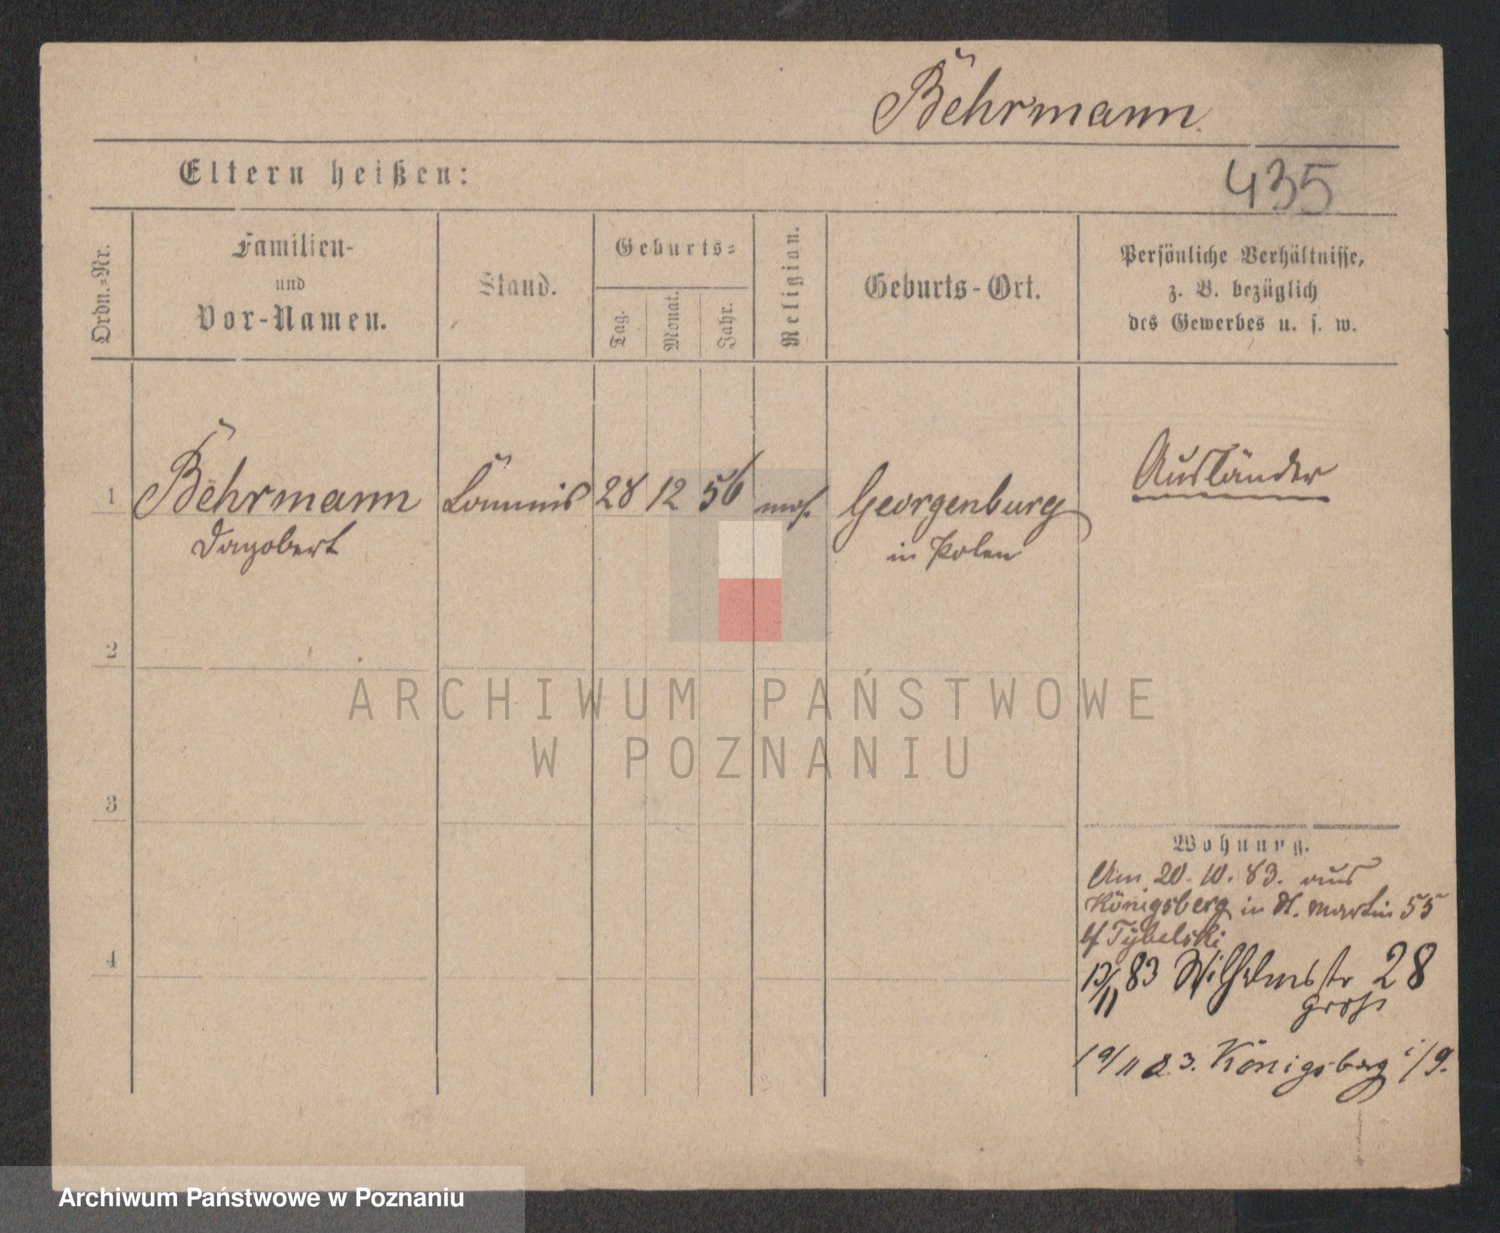 Behrmann.
Eltern heißen:
435
Ordn.=Nr.
Familien-
und
Vor-Namen.
Stand.
Geburts=
Tag.
Monat.
Jahr.
Religion.
Geburts-Ort.
Persönliche Verhältnisse,
z. B. bezüglich
des Gewerbes u. s. w.
1
Behrmann
Dagobert
Commis
28
12
56
mos.
Georgenburg
in Polen
Ausländer
2
3
4
ARCHIWUM PAŃSTWOWE
W POZNANIU
Wohnung.
Am 20. 10. 83. aus
Königsberg in St. Martin 55
bf Tybelski
13/11 83 Wilhelmstr 28
Gross
19/11 83. Königsberg i/P.
Archiwum Państwowe w Poznaniu